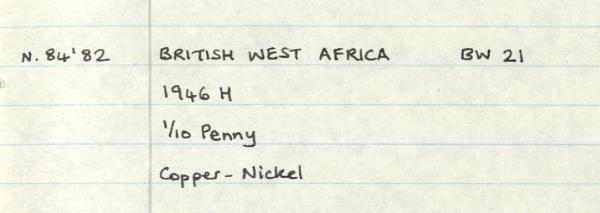 N. 84'82 BRITISH WEST AFRICA BW 21
1946 H
1/10 Penny
Copper-Nickel